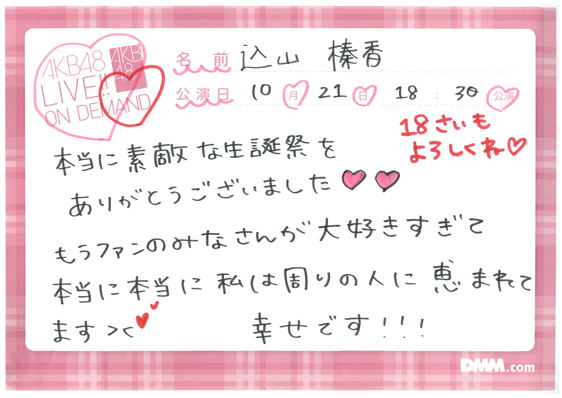 AKB48
LIVE!!
ON DEMAND
AKB
48
名前 込山 榛香
公演日 10月 21日 18:30公演
18さいも
よろしくね♡
本当に素敵な生誕祭を
ありがとうございました
もうファンのみなさんが大好きすぎて
本当に本当に私は周りの人に恵まれて
ます><
幸せです!!!
DMM.com